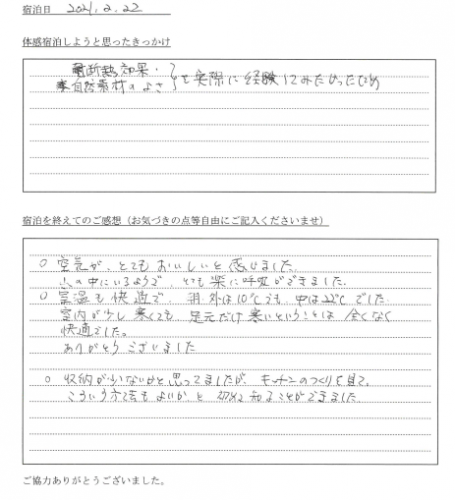 宿泊日 2021.2.22
体感宿泊しようと思ったきっかけ
断熱効果・
自然素材のよさ を実際に経験してみたかったため
宿泊を終えてのご感想（お気づきの点等自由にご記入くださいませ）
○ 空気が、とてもおいしいと感じました。
山の中にいるようで、とても楽に呼吸ができました。
○ 室温も快適で、外は10℃でも、中は22℃でした。
室内が少し寒くても、足元だけ寒いということは全くなく
快適でした。
ありがとうございました
○ 収納が少ないかと思ってましたが、キッチンのつくりを見て、
こういう方法もよいかと 知ることができました
ご協力ありがとうございました。